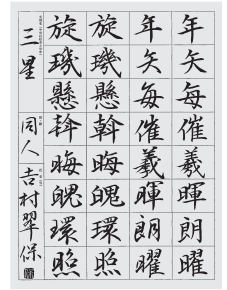 年矢每催羲暉朗曜
年矢每催羲暉朗曜
旋璣懸斡晦魄環照
旋璣懸斡晦魄環照
三星 同人 吉村翠保